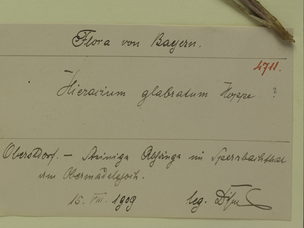 Flora von Bayern.
2711.
Hieracium glabratum Hoppe ?
Oberstdorf. – Steinige Abhänge im Sperrbachtobel
am Obermädelejoch.
15. VIII. 1909 leg.